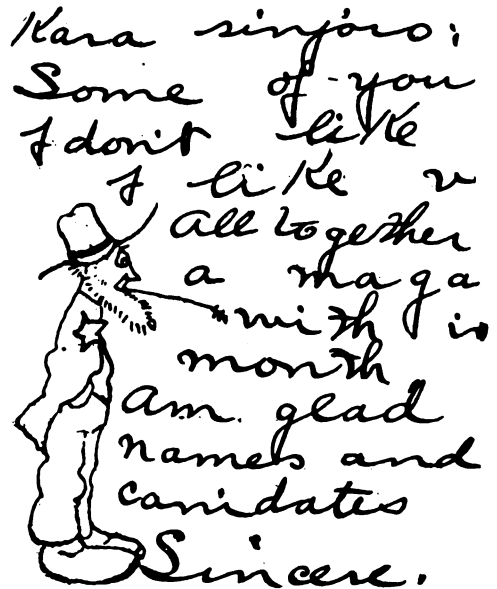 Kara sinjoro:
Some of you
I don't like
I like v
all together
a maga
with is
month
am glad
names and
canidates
Sincere.